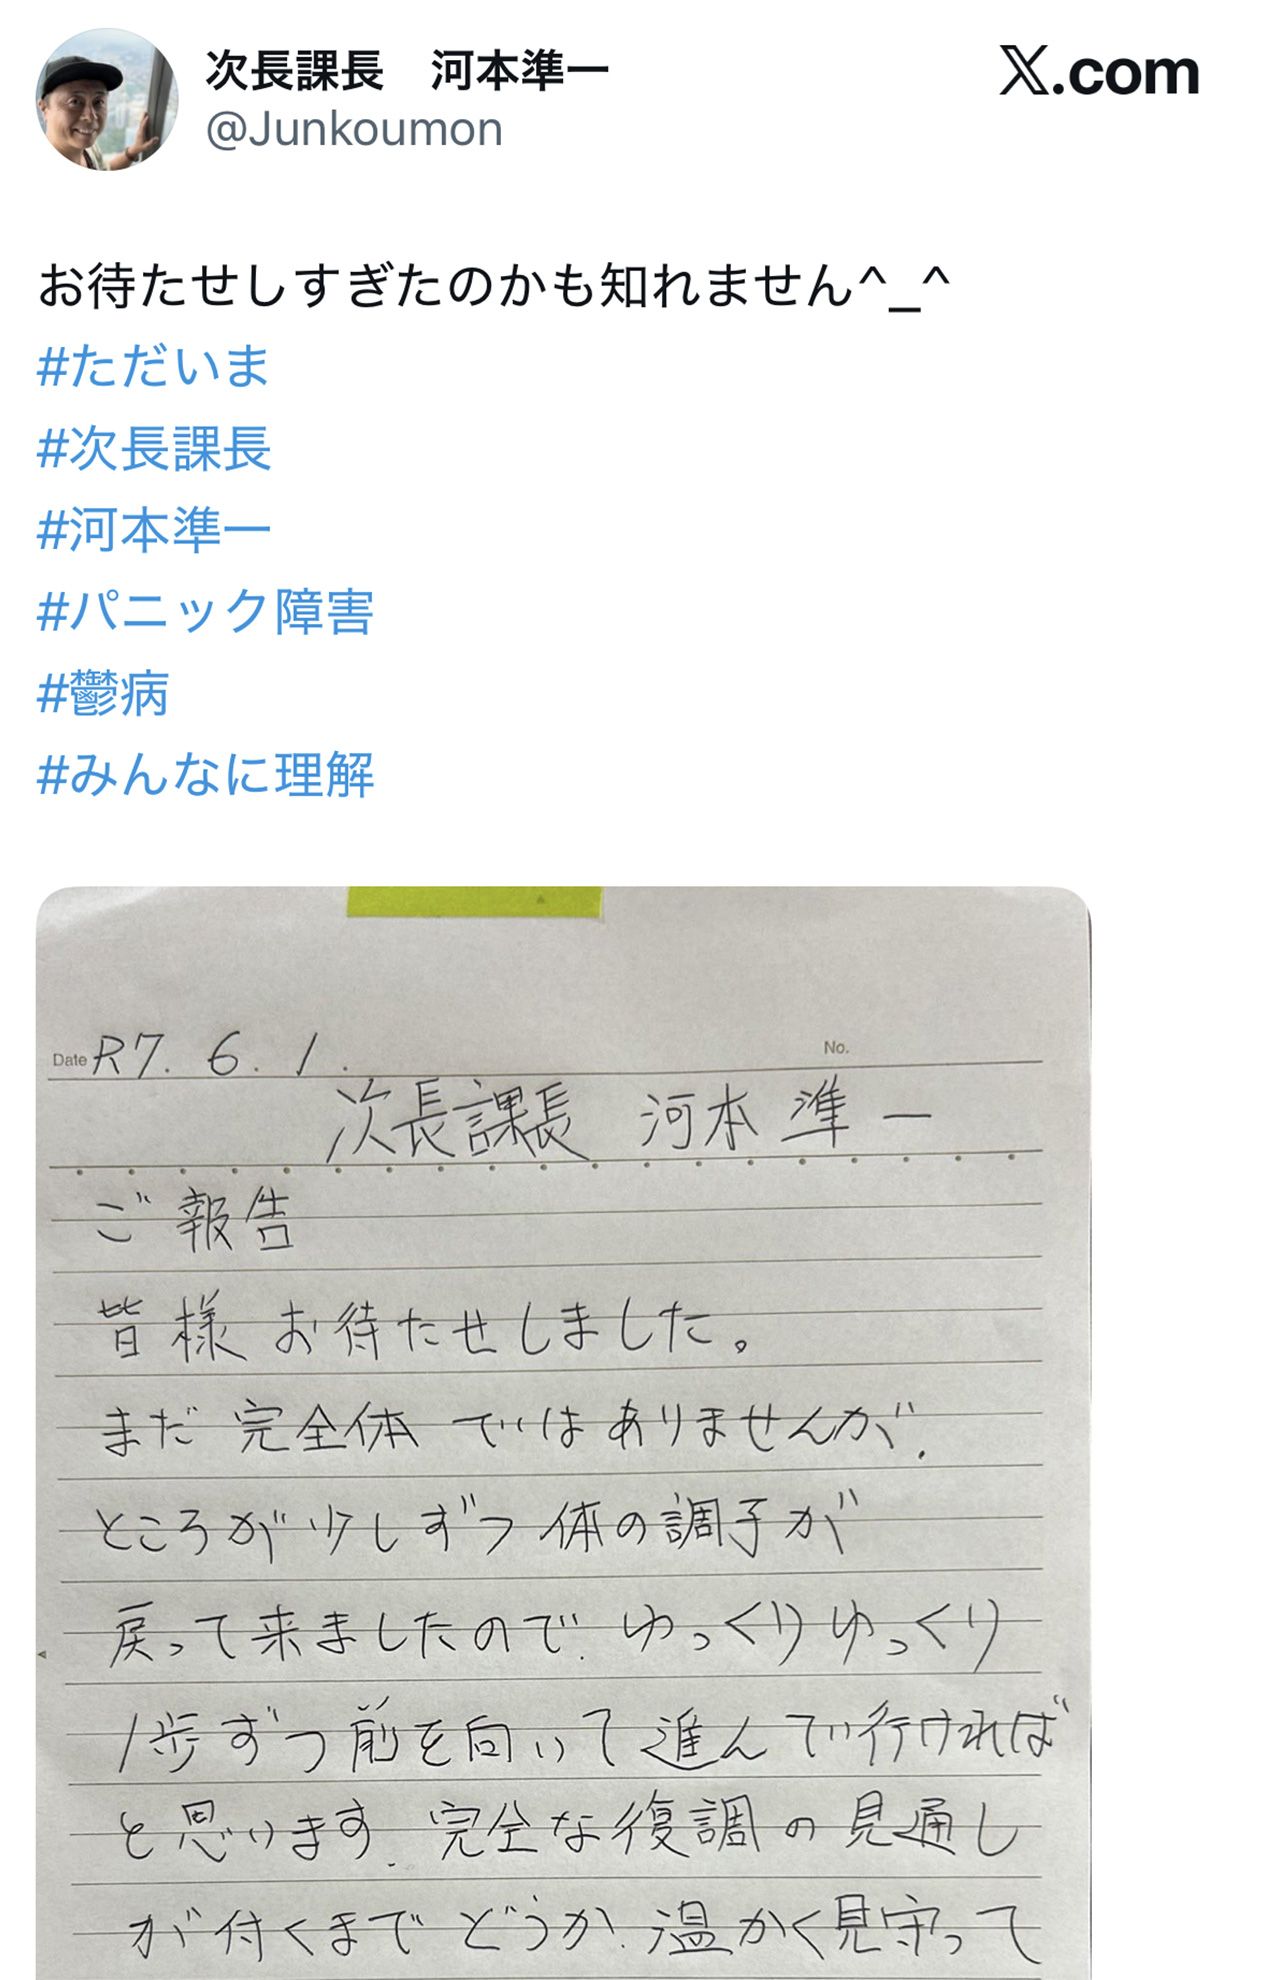 次長課長　河本準一
X.com
@Junkoumon
お待たせしすぎたのかも知れません^_^
#ただいま
#次長課長
#河本準一
#パニック障害
#鬱病
#みんなに理解
Date R7. 6. 1.
No.
次長課長 河本準一
ご報告
皆様お待たせしました。
まだ完全体ではありませんが、
ところが少しずつ体の調子が
戻って来ましたので、ゆっくりゆっくり
1歩ずつ前を向いて進んで行ければ
と思います、完全な復調の見通し
が付くまでどうか、温かく見守って